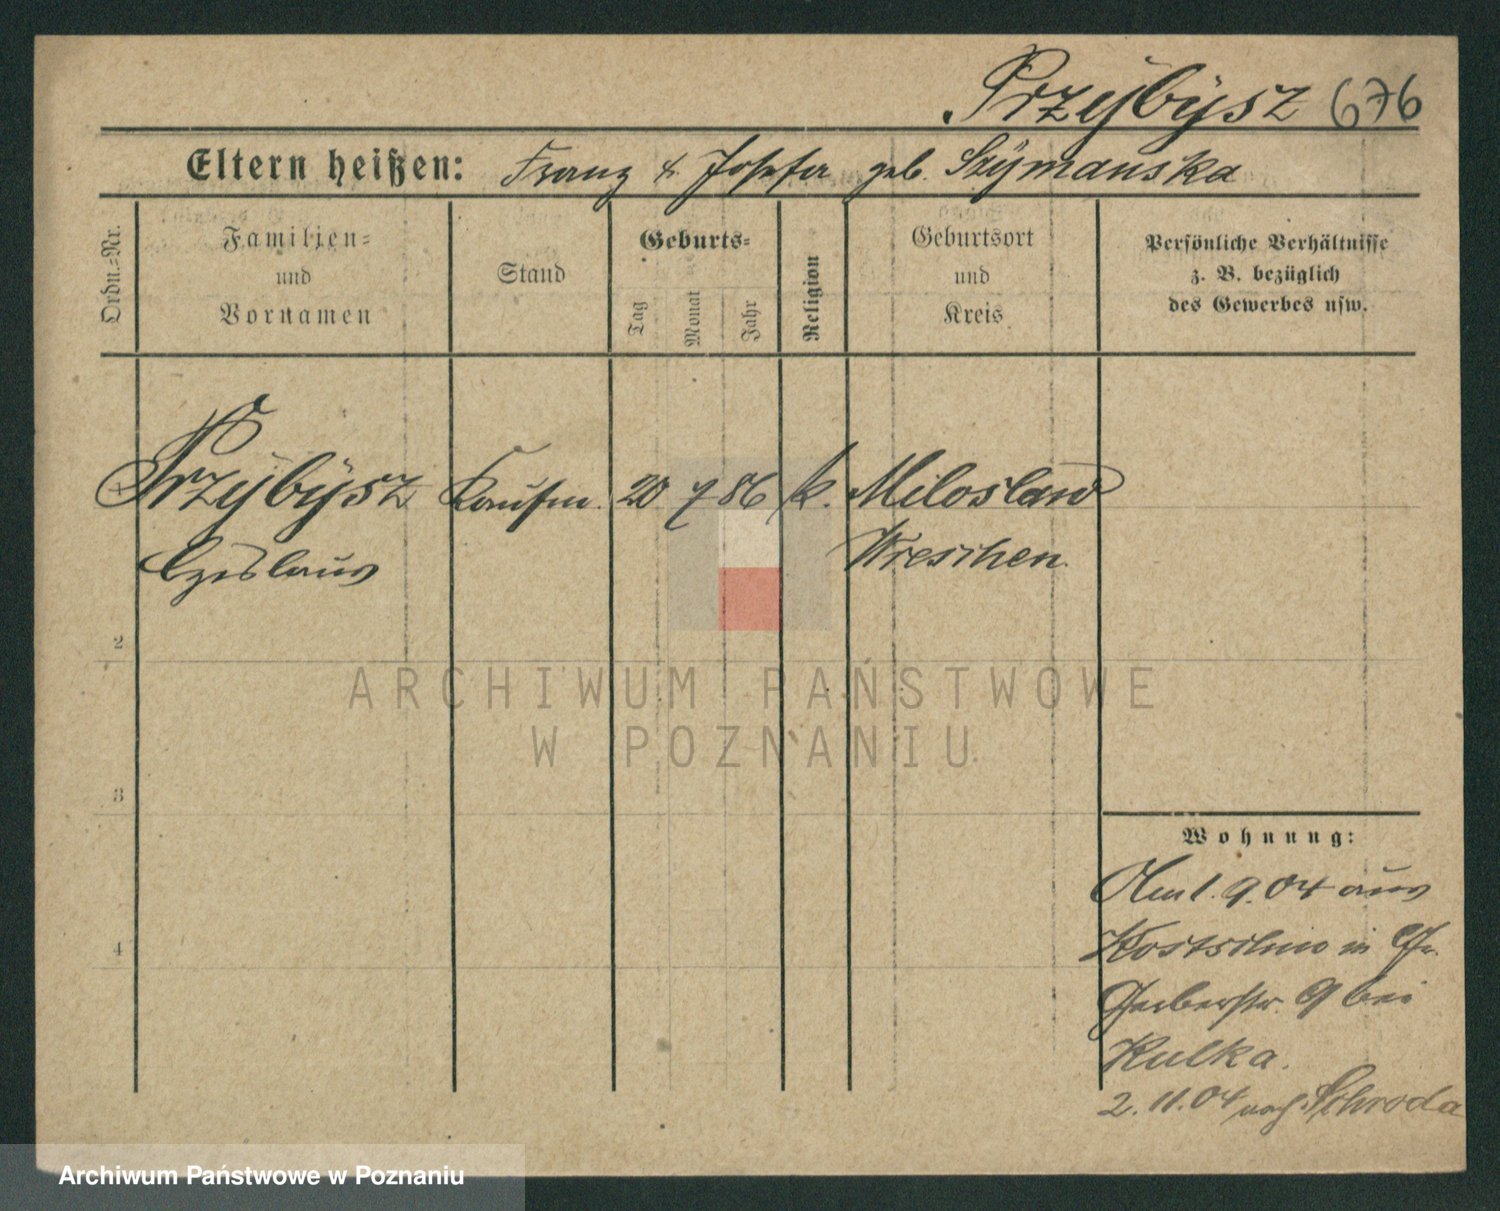 Przybysz 676
Eltern heißen: Franz & Josefa geb. Szymanska
Ordn.=Nr.
Familien=
und
Vornamen
Stand
Geburts=
Tag
Monat
Jahr
Religion
Geburtsort
und
Kreis
Persönliche Verhältnisse
z. B. bezüglich
des Gewerbes usw.
Przybysz Kaufm. 20 7 86 k. Miloslaw
Czeslaus Wreschen.
2
3
4
ARCHIWUM PAŃSTWOWE
W POZNANIU
Wohnung:
Am 1. 9. 04 aus
in
Gerberstr. 9 bei
Kulka.
2. 11. 04 nach Schroda
Archiwum Państwowe w Poznaniu